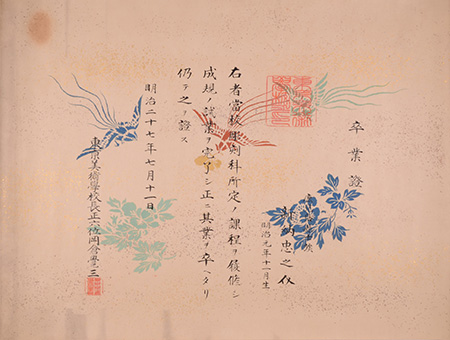 卒業證
新納忠之介
明治元年十一月生
右者當校彫刻科所定ノ課程ヲ履修シ
成規ノ試業ヲ完了シ正ニ其業ヲ卒ヘタリ
仍テ之ヲ證ス
明治二十七年七月十一日
東京美術學校長正六位岡倉覺三